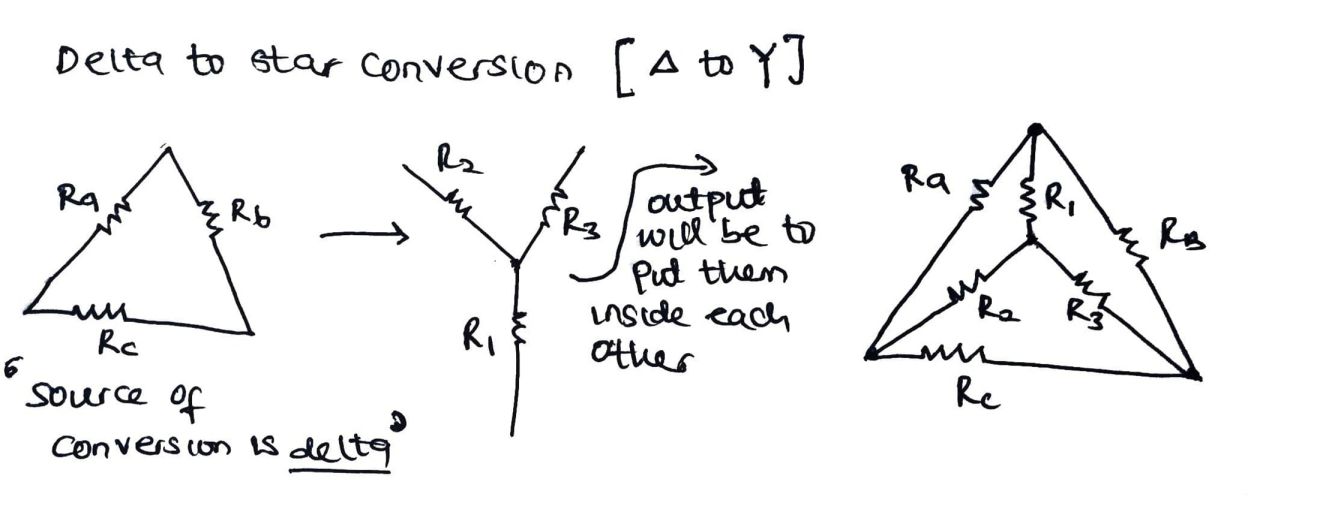 Delta to star conversion [Δ to Y]
Ra
Rb
Rc
"Source of
conversion is delta"
R2
R3
R1
output
will be to
put them
inside each
other
Ra
R1
RB
R2
R3
Rc